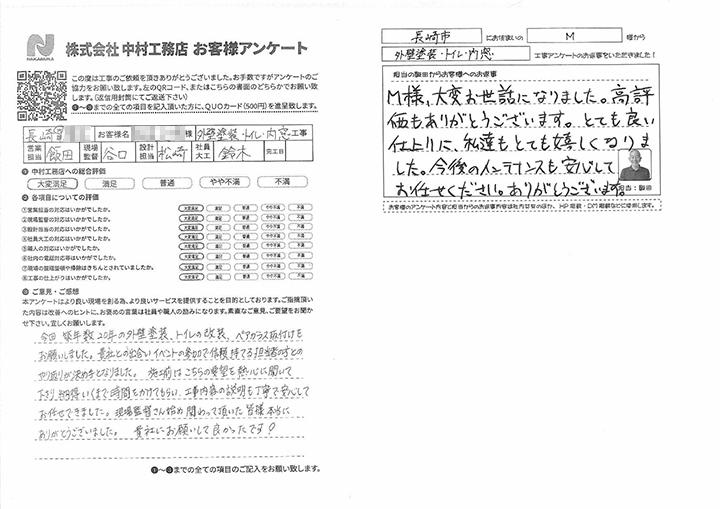 NAKAMURA
株式会社 中村工務店 お客様アンケート
この度は工事のご依頼を頂きありがとうございました。お手数ですがアンケートのご
協力をお願い致します。左のQRコード、またはこちらの書面のどちらかでお願い致
します。(返信用封筒にてご返送下さい)
❶~❸までの全ての項目を記入頂いた方に、QUOカード(500円)を進呈致します。
お客様名 様 外壁塗装・トイレ・内窓 工事
営業担当 飯田 現場監督 谷口 設計担当 松崎 社員大工 鈴木 完工日
❶ 中村工務店への総合評価
大変満足 満足 普通 やや不満 不満
❷ 各項目についての評価
①営業担当の対応はいかがでしたか。 大変満足 満足 普通 やや不満 不満
②現場監督の対応はいかがでしたか。 大変満足 満足 普通 やや不満 不満
③設計担当の対応はいかがでしたか。 大変満足 満足 普通 やや不満 不満
④社員大工の対応はいかがでしたか。 大変満足 満足 普通 やや不満 不満
⑤職人の対応はいかがでしたか。 大変満足 満足 普通 やや不満 不満
⑥社内の電話対応等はいかがでしたか。 大変満足 満足 普通 やや不満 不満
⑦現場の整理整頓や掃除はきちんとされていましたか。 大変満足 満足 普通 やや不満 不満
⑧工事の仕上がりはいかがでしたか。 大変満足 満足 普通 やや不満 不満
❸ ご意見・ご感想
本アンケートはより良い現場を創る為、より良いサービスを提供することを目的としております。ご指摘頂い
た内容は改善へのヒントに、お褒めの言葉は社員や職人の励みになります。素直なご意見、ご要望をお聞か
せ下さい。宜しくお願い致します。
今回 築年数20年の外壁塗装、トイレの改装、ペアガラス取付けを
お願いしました。貴社との出会いイベントの参加で信頼持てる担当者さとの
やり取りが決め手となりました。 施工前はこちらの要望を熱心に聞いて
下さり、納得いくまで時間をかけてもらい、工事内容の説明も丁寧で安心して
お任せできました。現場監督さん始め関わって頂いた皆様本当に
ありがとうございました。 貴社にお願いして良かったです!
❶~❸までの全ての項目のご記入をお願い致します。
長崎市 にお住まいの M 様から
外壁塗装・トイレ・内窓 工事アンケートのお返事をいただきました!
担当の飯田からお客様へのお返事
M様、大変お世話になりました。高評
価もありがとうございます。とても良い
仕上りに、私達もとても嬉しくなりま
した。今後のメンテナンスも安心して
お任せください。ありがとうございます。
担当:飯田
お客様のアンケート内容と担当からのお返事内容は社内共有のほか、HP掲載・DM掲載などに使用します。